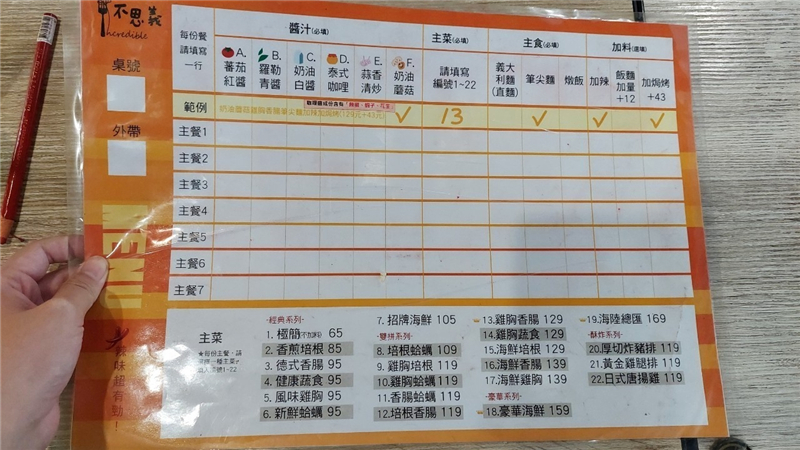 不思義
ncredible
桌號
外帶
MENU
每份餐
請填寫
一行
醬汁(必填)
主菜(必填)
主食(必填)
加料(選填)
A.
蕃茄
紅醬
B.
羅勒
青醬
C.
奶油
白醬
D.
泰式
咖哩
E.
蒜香
清炒
F.
奶油
蘑菇
請填寫
編號1~22
義大
利麵
(直麵)
筆尖麵
燉飯
加辣
飯麵
加量
+12
加焗烤
+43
範例
奶油蘑菇雞胸香腸筆尖麵加辣加焗烤(129元+43元)
13
主餐1
主餐2
主餐3
主餐4
主餐5
主餐6
主餐7
主菜
-經典系列-
1. 極簡(不加料) 65
2. 香煎培根 85
3. 德式香腸 95
4. 健康蔬食 95
5. 風味雞胸 95
6. 新鮮蛤蠣 95
7. 招牌海鮮 105
-雙拼系列-
8. 培根蛤蠣 109
9. 雞胸培根 119
10.雞胸蛤蠣 119
11.香腸蛤蠣 119
12.培根香腸 119
13.雞胸香腸 129
14.雞胸蔬食 129
15.海鮮培根 129
16.海鮮香腸 139
17.海鮮雞胸 139
-豪華系列-
18.豪華海鮮 159
19.海陸總匯 169
-酥炸系列-
20.厚切炸豬排 119
21.黃金雞腿排 119
22.日式唐揚雞 119